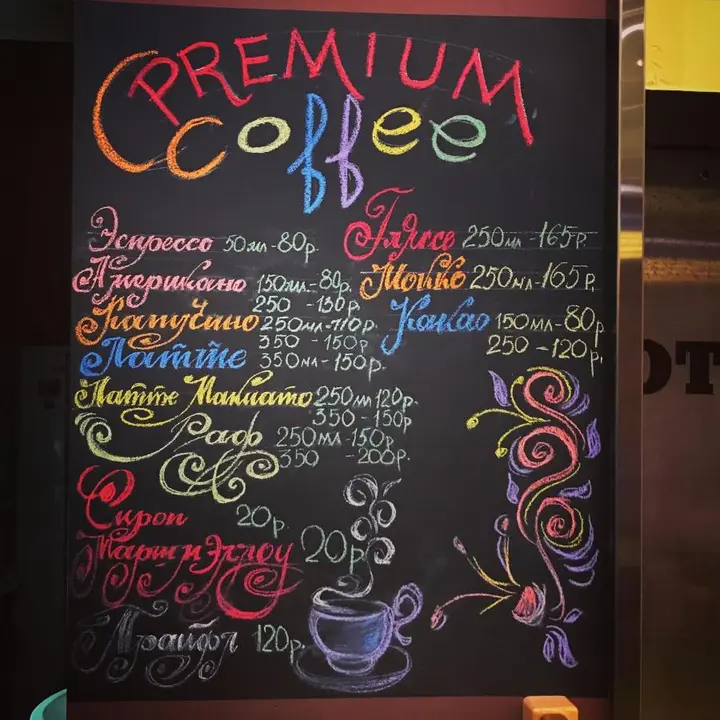 PREMIUM
Coffee
Эспрессо 50мл-80р.
Американо 150мл-80р.
250 -130р.
Капучино 250мл-110р.
350 -150р.
Латте 350мл-150р.
Латте Макиато 250мл 120р.
350 -150р
Раф 250мл-150р.
350 -200р.
Гляссе 250мл-165р.
Мокко 250мл-165р.
Какао 150мл-80р
250 -120р.
Сироп 20р.
Маршмэллоу 20р.
120р.
ОТ